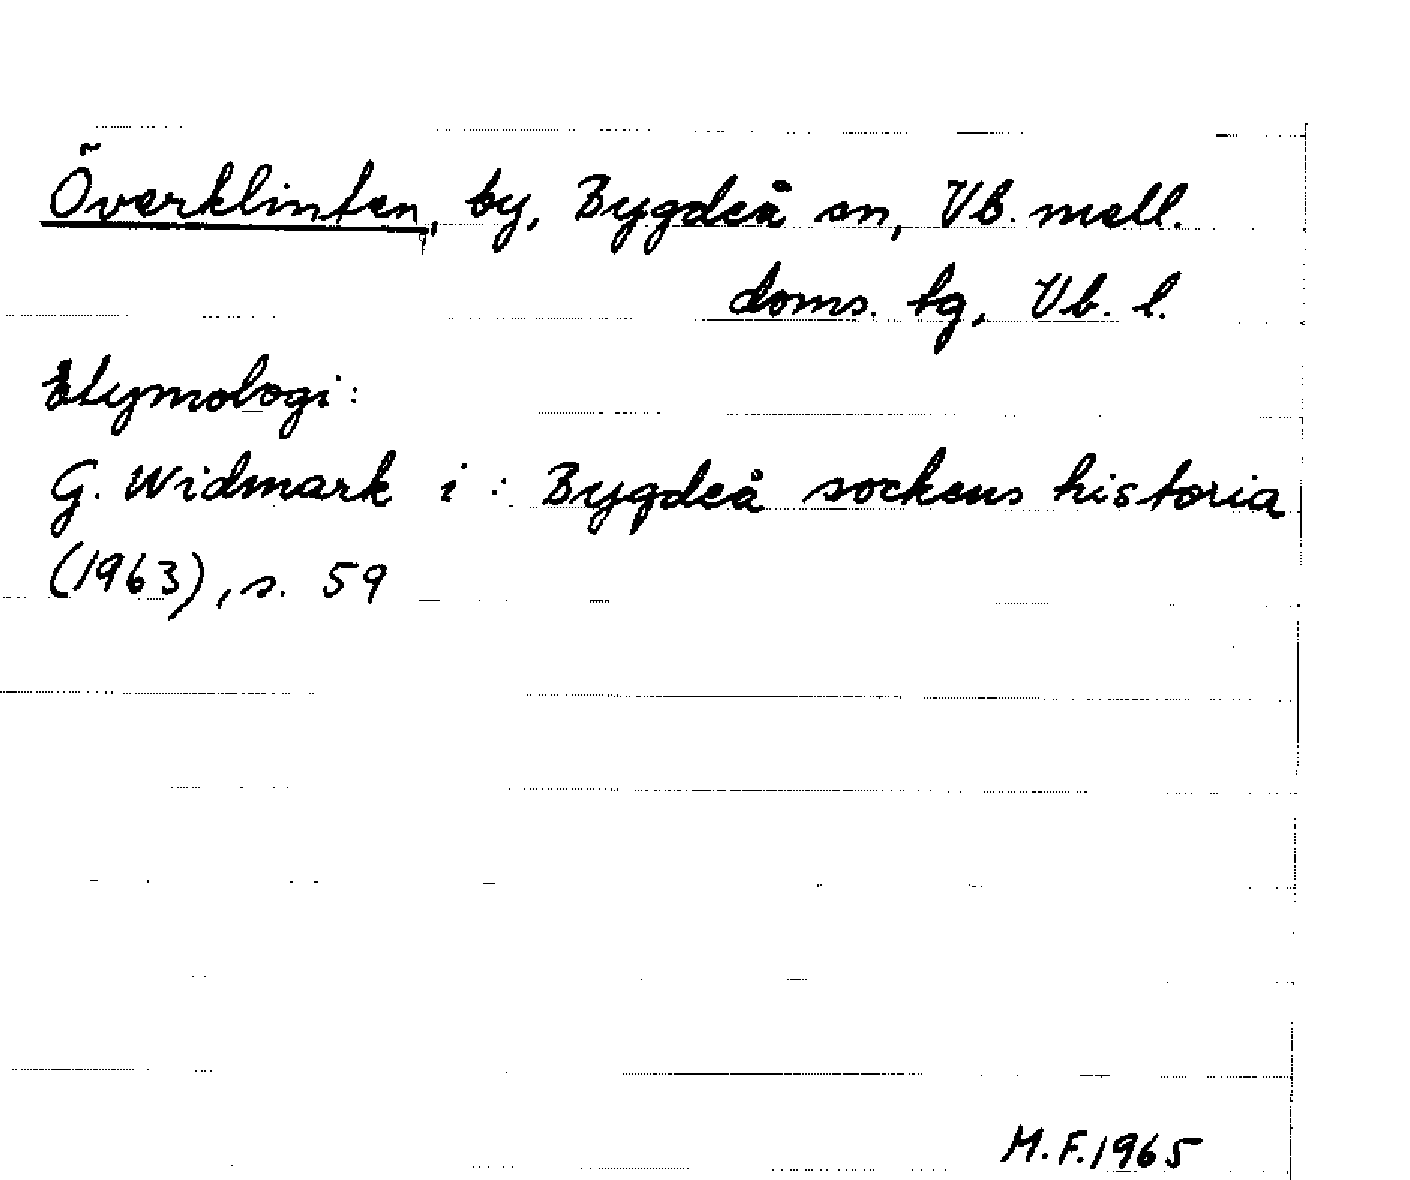 Överklinten, by, Bygdeå sn, Vb. mell.
doms. tg, Vb. l.
Etymologi:
G. Widmark i : Bygdeå sockens historia
(1963), s. 59
M.F.1965